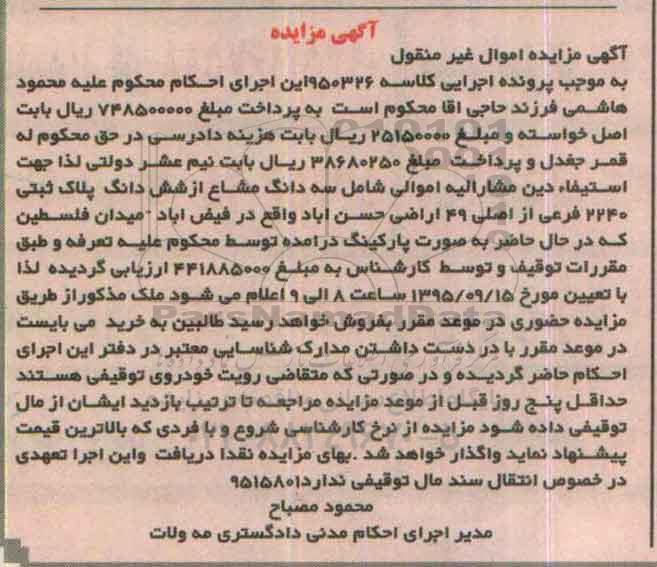 آگهی مزایده
آگهی مزایده اموال غیر منقول
به موجب پرونده اجرایی کلاسه ۹۵۰۳۲۶این اجرای احکام محکوم علیه محمود
هاشمی فرزند حاجی اقا محکوم است به پرداخت مبلغ ۷۴۸۵۰۰۰۰۰ ریال بابت
اصل خواسته و مبلغ ۲۵۱۵۰۰۰۰ ریال بابت هزینه دادرسی در حق محکوم له
قمر جغدل و پرداخت مبلغ ۳۸۶۸۰۲۵۰ ریال بابت نیم عشر دولتی لذا جهت
استیفاء دین مشارالیه اموالی شامل سه دانگ مشاع ازشش دانگ پلاک ثبتی
۲۲۴۰ فرعی از اصلی ۴۹ اراضی حسن اباد واقع در فیض اباد -میدان فلسطین
که در حال حاضر به صورت پارکینگ درامده توسط محکوم علیه تعرفه و طبق
مقررات توقیف و توسط کارشناس به مبلغ ۴۴۱۸۸۵۰۰۰ ارزیابی گردیده لذا
با تعیین مورخ ۱۳۹۵/۰۹/۱۵ ساعت ۸ الی ۹ اعلام می شود ملک مذکوراز طریق
مزایده حضوری در موعد مقرر بفروش خواهد رسید طالبین به خرید می بایست
در موعد مقرر با در دست داشتن مدارک شناسایی معتبر در دفتر این اجرای
احکام حاضر گردیده و در صورتی که متقاضی رویت خودروی توقیفی هستند
حداقل پنج روز قبل از موعد مزایده مراجعه تا ترتیب بازدید ایشان از مال
توقیفی داده شود مزایده از نرخ کارشناسی شروع و با فردی که بالاترین قیمت
پیشنهاد نماید واگذار خواهد شد .بهای مزایده نقدا دریافت واین اجرا تعهدی
در خصوص انتقال سند مال توقیفی ندارد۹۵۱۵۸۰۱
محمود مصباح
مدیر اجرای احکام مدنی دادگستری مه ولات
ParsNamadData